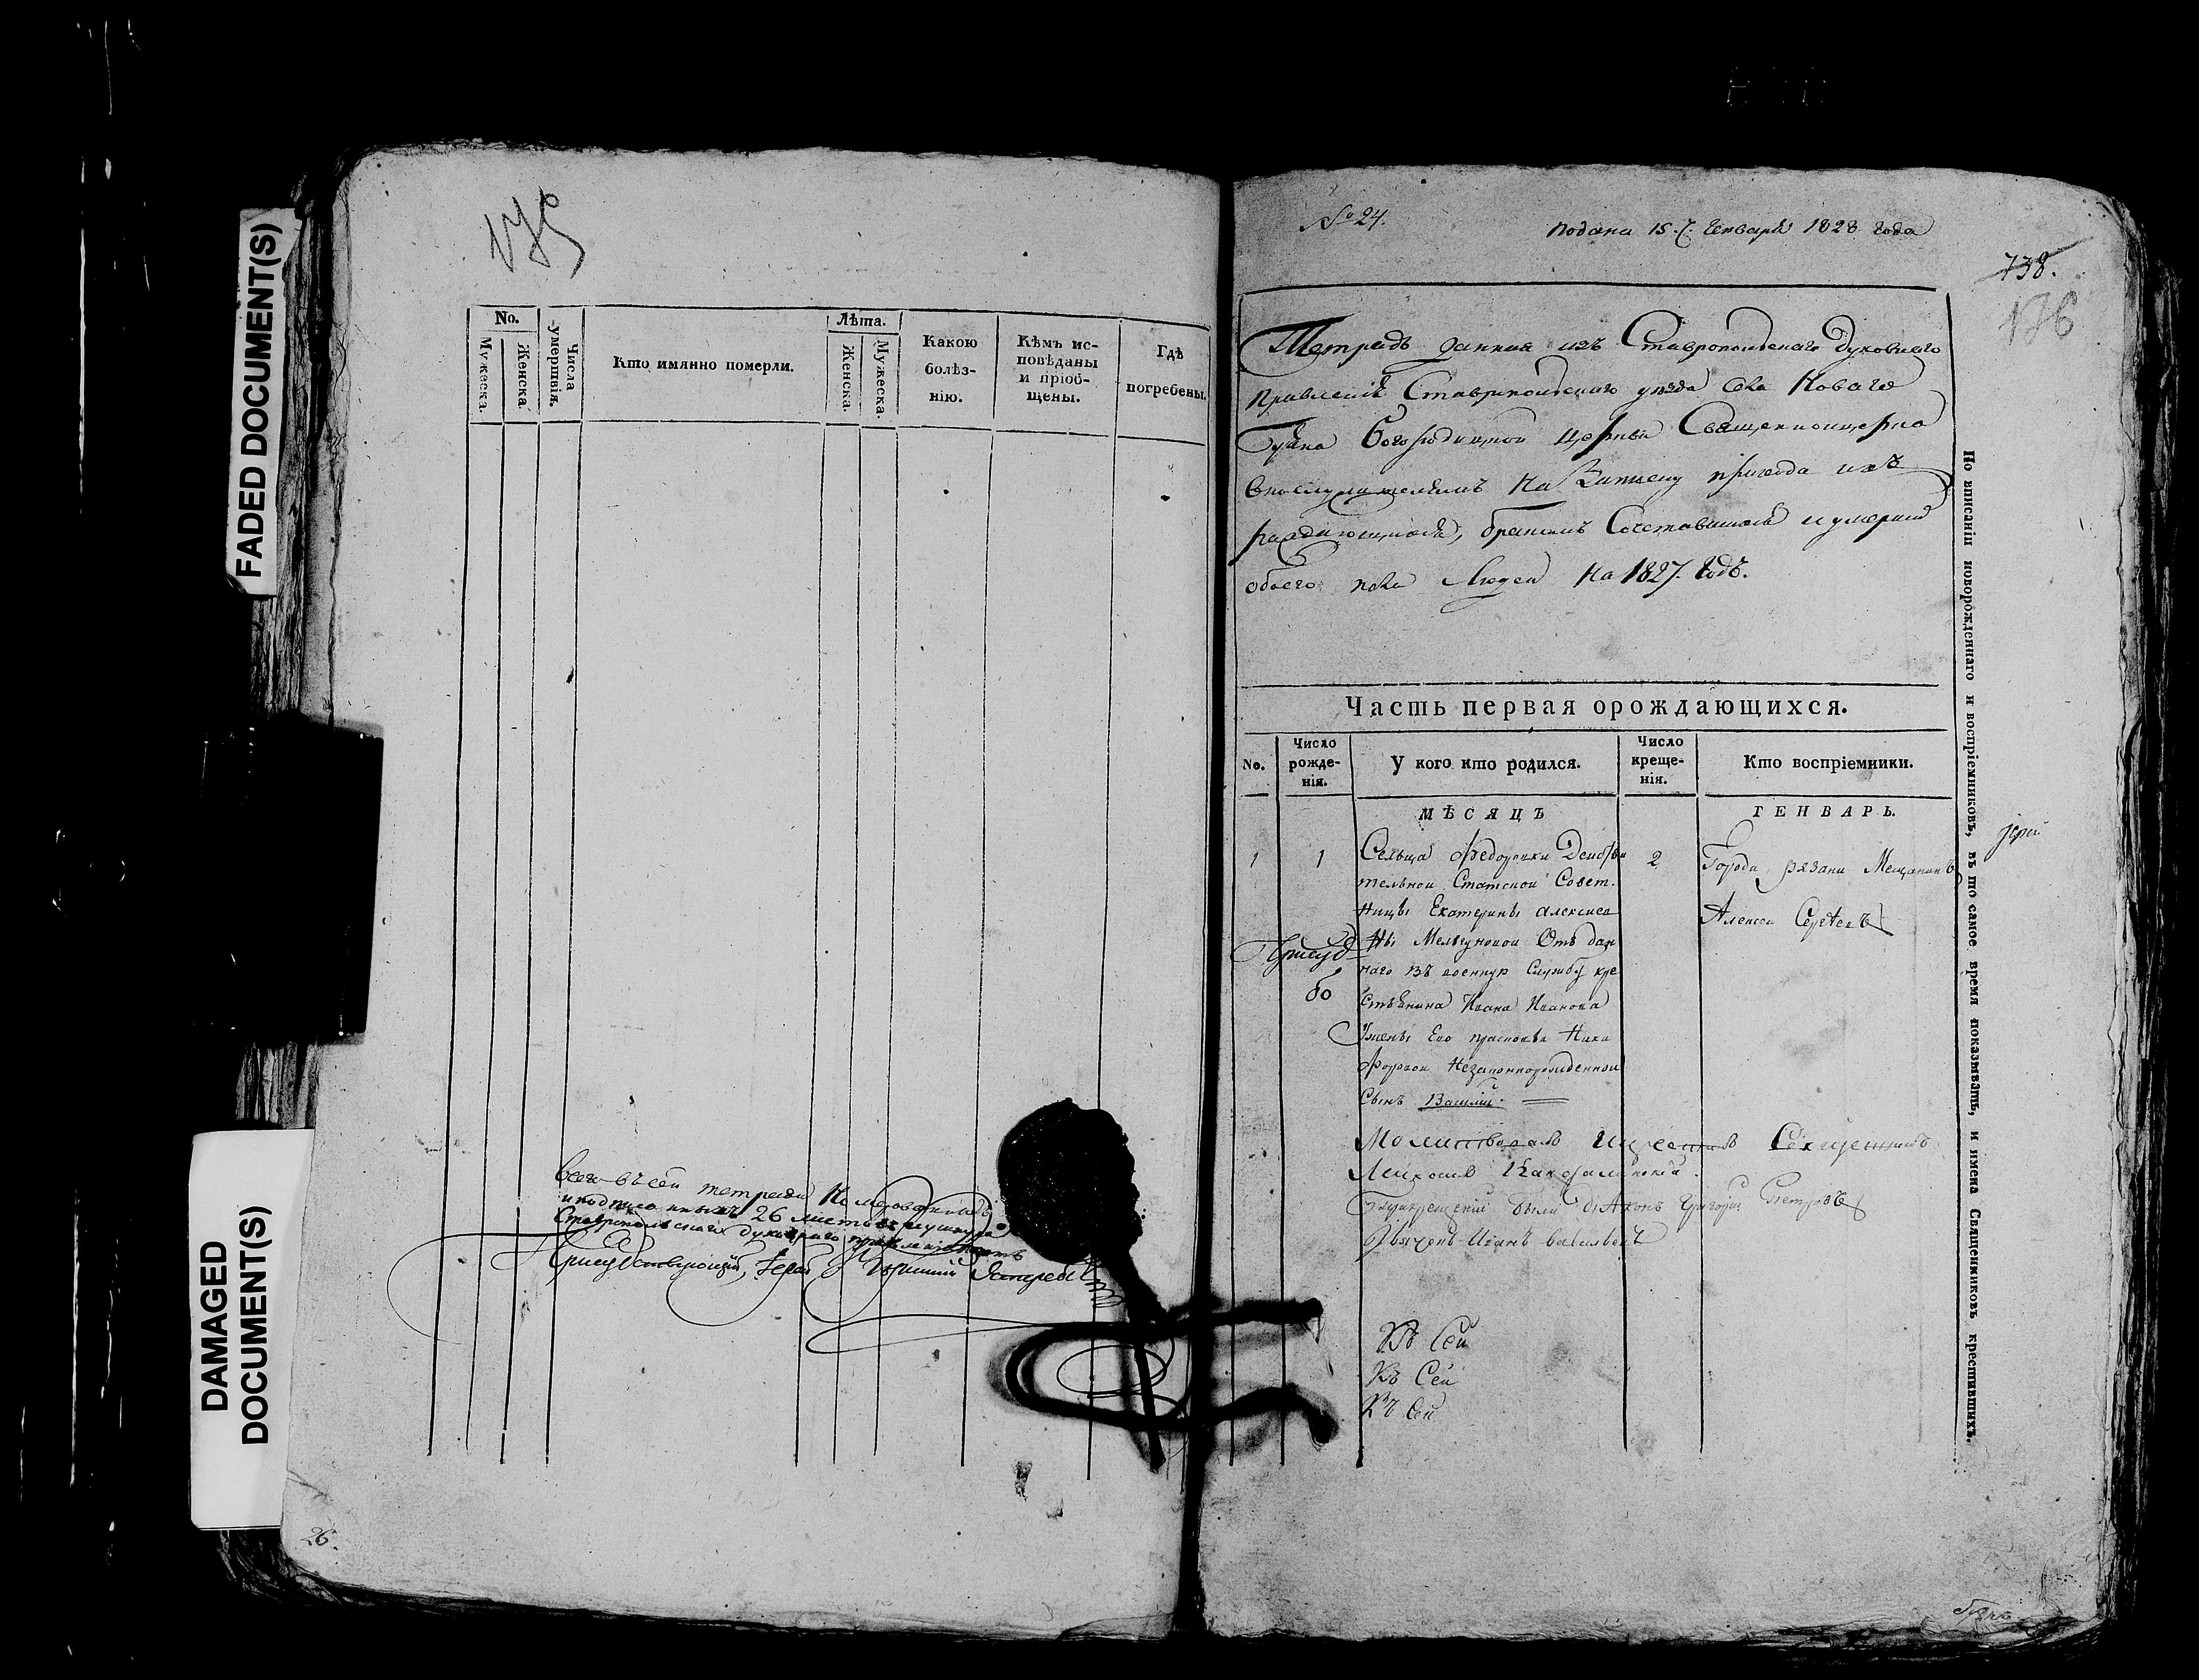 FADED DOCUMENT(S)
DAMAGED DOCUMENT(S)
175
No.
Мужеска.
Женска.
Числа умершвія.
Кто имянно померли.
Лѣта.
Женска.
Мужеска.
Какою болѣз-
нію.
Кѣмъ ис-
повѣданы
и пріоб-
щены.
Гдѣ
погребены.
всего въ сей тетради
26 листовъ
Ставропольскаго духовнаго правленія
Присутствующий, Іерей
26.
№ 24.
подана 15. Генваря 1828 года
738.
176
Тетрадь данная изъ Ставропольскаго духовнаго
правленія Ставропольскаго уезда села Новаго
Буяна Богородицкой церкви Священноцерко
внослужителямъ на Записку прихода ихъ
раждающихся, бракомъ Сочетавшихся и умерши
обоего пола Людей на 1827. Годъ.
Часть первая орождающихся.
No.
Число
рожде-
нія.
У кого кто родился.
Число
креще-
нія.
Кто воспріемники.
МѢСЯЦЪ
ГЕНВАРЬ.
1
1
Сельца Федоровки Действи
тельной Статской Совет.
ницы Екатерины алексеев
ны Мельгуновой Отъ дан
наго въ военную Службу кре
стьянина Ивана Иванова
Жены Его прасковьи Ники
форовой Незаконнорожденной
Сынъ Василий
2
Города Рязани Мещанинъ
Алексей Сергеевъ
Присуд
бо
Молитвовалъ и крестилъ Священникъ
При крещении были диаконъ Григорий Петровъ
Дьячокъ Иванъ Васильевъ
Къ Сей
Къ Сей
Къ Сей
По вписаніи новорожденаго и воспріемниковъ, въ то самое время показывать, и имена Священниковъ крестившихъ.
Іерей